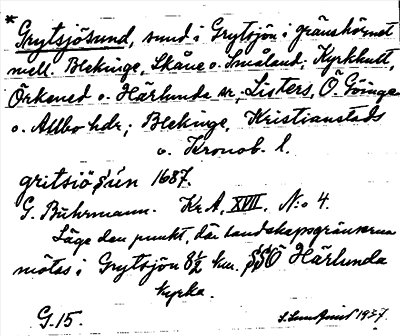 * Grytsjösund, sund i Grytsjön i gränshörnet
mell. Blekinge, Skåne o. Småland; Kyrkhult,
Örkened o. Härlunda sr; Listers, Ö. Göinge
o. Allbo hdr; Blekinge, Kristianstads
o. Kronob. l.
gritsiö siún 1687.
G. Buhrmann. Kr. A, XVIII. N:o 4.
Läge den punkt, där landskapsgränserna
mötas i Grytsjön 8½ km. SSÖ Härlunda
kyrka.
G. 15. 1937.